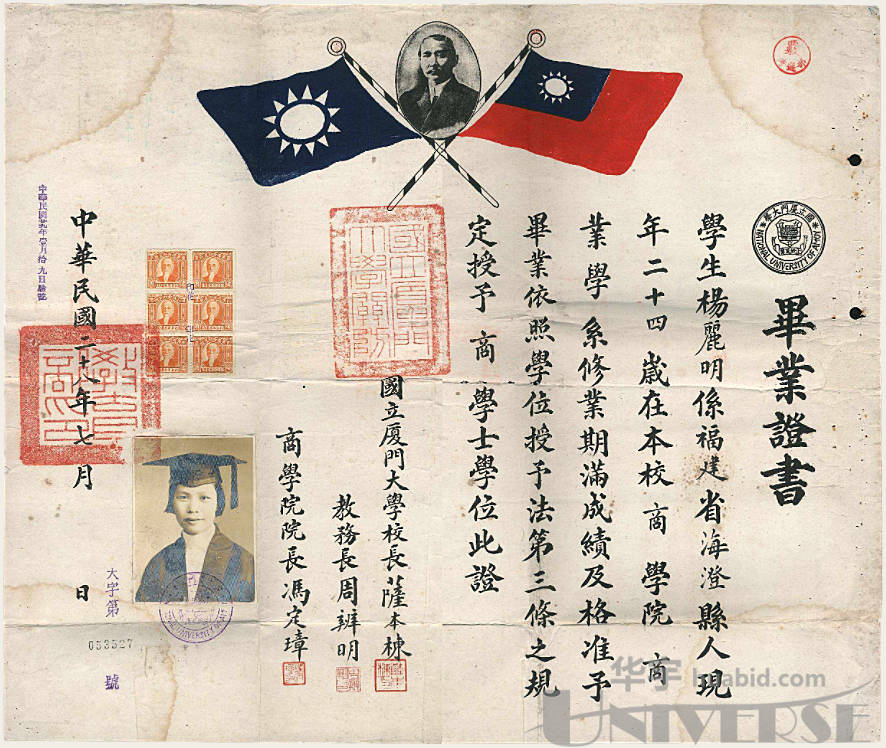 畢業證書
學生楊麗明係福建省海澄縣人現
年二十四歲在本校商學院商
業學系修業期滿成績及格准予
畢業依照學位授予法第三條之規
定授予商學士學位此證
國立廈門大學校長薩本棟
教務長周辨明
商學院院長馮定璋
中華民國二十八年七月 日
大字第
053527
號
國立廈門大學
NATIONAL UNIVERSITY OF AMOY
國立廈門大學關防
教育部印
华宇 huabid.com
UNIVERSE